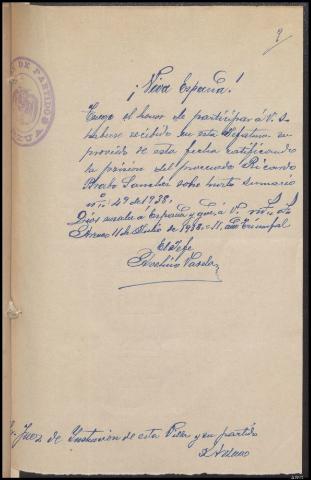 ¡Viva España!
Tengo el honor de participar á V. S.
haberse recibido en esta Jefatura su
proveido de esta fecha ratificando
la prision del procesado Ricardo
Sanchez sobre hurto sumario
nº 49 de 1938.
Dios salve á España y gue. á V. m. a.
11 de Julio de 1938.- II. año Triunfal
El Jefe
Varela
Juez de Instrucion de esta Villa y su partido
DE PARTIDOS